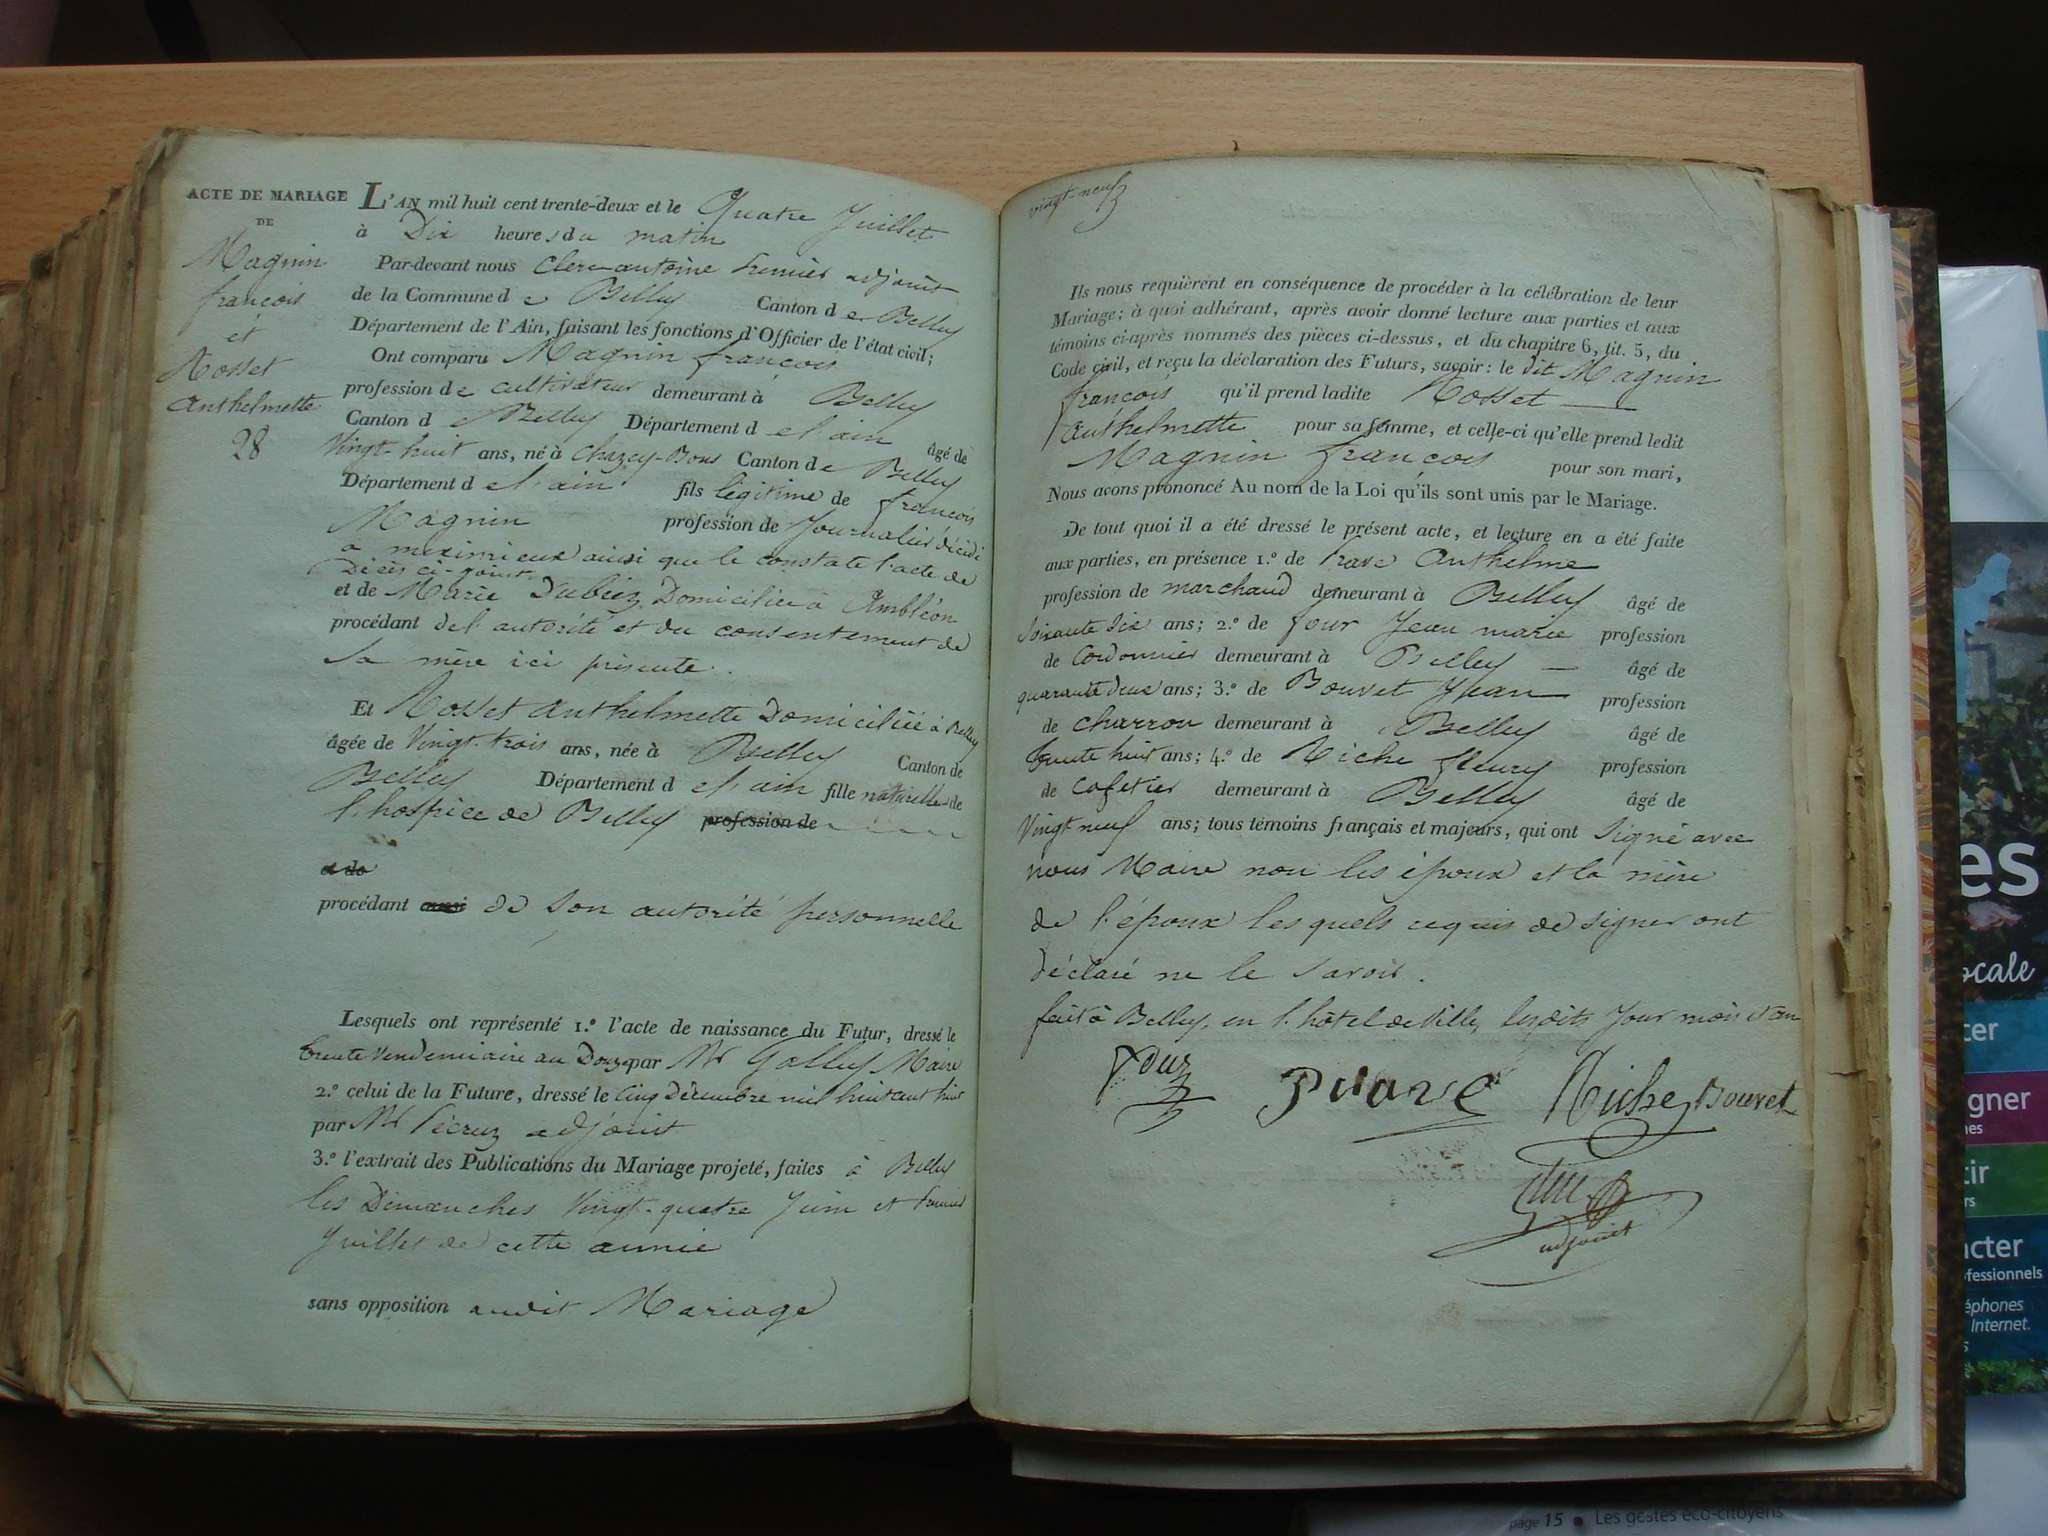 ACTE DE MARIAGE
DE
Magnin
françois
et
Rosset
anthelmette
28
L'AN mil huit cent trente-deux et le Quatre Juillet
à Dix heures du matin
Par-devant nous Clerc antoine Premier adjoint
de la Commune de Belley Canton de Belley
Département de l'Ain, faisant les fonctions d'Officier de l'état civil;
Ont comparu Magnin françois
profession de cultivateur demeurant à Belley
Canton de Belley Département de l'ain âgé de
Vingt-huit ans, né à Chazey-Bons Canton de Belley
Département de l'ain fils légitime de françois
Magnin profession de Journalier décédé
a meximieux ainsi que le constate l'acte de
Décès ci-joint
et de Marie Dubiez Domiciliée à Ambléon
procédant de l'autorité et du consentement de
sa mère ici présente.
Et Rosset anthelmette Domiciliée à Belley
âgée de Vingt-trois ans, née à Belley Canton de
Belley Département de l'ain fille naturelle de
l'hospice de Belley profession de
et de
procédant aussi de son autorité personnelle
Lesquels ont représenté 1.º l'acte de naissance du Futur, dressé le
trente Vendemiaire an Douze par Mr Golley Maire
2.º celui de la Future, dressé le Cinq Décembre mil huit cent huit
par Mr Pécruz adjoint
3.º l'extrait des Publications du Mariage projeté, faites à Belley
les Dimanches Vingt-quatre Juin et Premier
Juillet de cette année
sans opposition audit Mariage
vingt-neuf
Ils nous requièrent en conséquence de procéder à la célébration de leur
Mariage; à quoi adhérant, après avoir donné lecture aux parties et aux
témoins ci-après nommés des pièces ci-dessus, et du chapitre 6, tit. 5, du
Code civil, et reçu la déclaration des Futurs, savoir: le dit Magnin
françois qu'il prend ladite Rosset
anthelmette pour sa femme, et celle-ci qu'elle prend ledit
Magnin françois pour son mari,
Nous avons prononcé Au nom de la Loi qu'ils sont unis par le Mariage.
De tout quoi il a été dressé le présent acte, et lecture en a été faite
aux parties, en présence 1.º de Prave Anthelme
profession de marchand demeurant à Belley âgé de
Soixante Six ans; 2.º de four Jean marie profession
de Cordonnier demeurant à Belley âgé de
quarante deux ans; 3.º de Bouvet Jean profession
de charron demeurant à Belley âgé de
trente huit ans; 4.º de Riche fleury profession
de Cafetier demeurant à Belley âgé de
Vingt neuf ans; tous témoins français et majeurs, qui ont signé avec
nous Maire non les époux et la mère
de l'époux lesquels requis de signer ont
déclaré ne le savoir.
fait à Belley, en l'hôtel de Ville, lesdits Jour mois et an
Riche Bouvet
adjoint
es
ocale
cer
gner
nes
tir
rs
acter
ofessionnels
éphones
Internet.
page 15 • Les gestes éco-citoyens